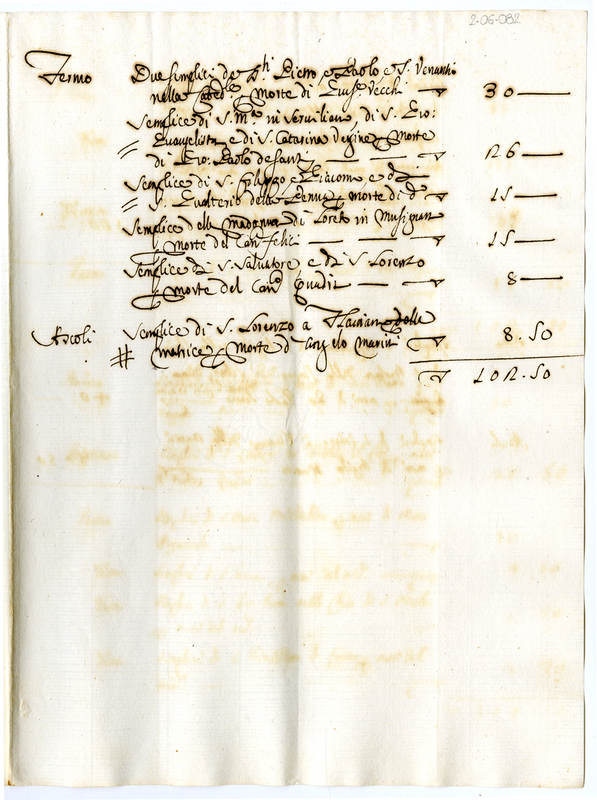 2-06-092
Fermo Due semplici de SS.ti Pietro e Paolo e S. Venantio
nella morte di Vecchi 30
Semplice di S. M.a in di S. Gio:
Evangelista e di S. Catarina Vergine morte
di Gio: Paolo de Santi 26
Semplice di S. Filippo e Giacomo e di
S. Gualterio della Penna morte di d.o 15
Semplice della Madonna di Loreto in Musignan
morte del Can.co Felici 15
Semplice di S. Salvatore e di S. Lorenzo
morte del Can.co 8
Ascoli Semplice di S. Lorenzo a Flavian delle
matrice morte d Angelo Marin 8.50
102.50